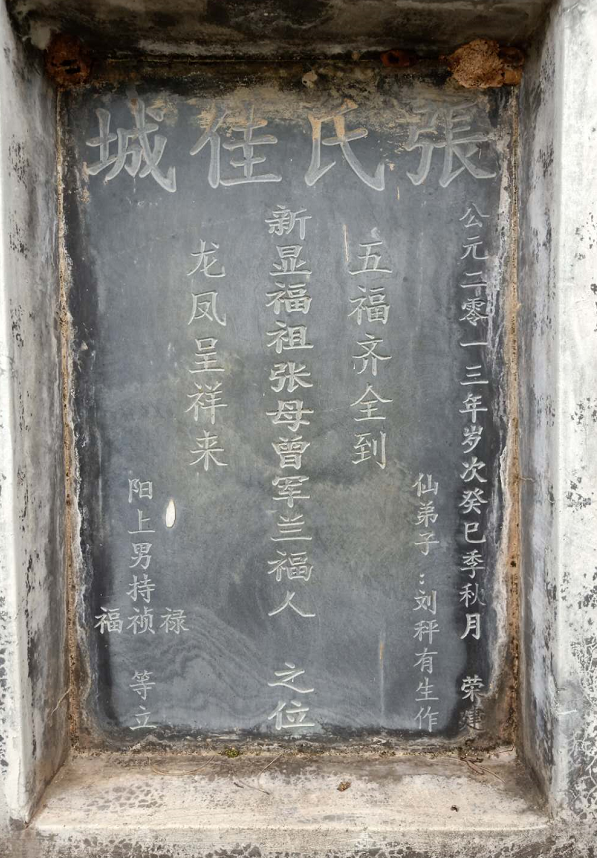 張氏佳城
公元二零一三年岁次癸巳季秋月 荣建
仙弟子:刘秤有生作
五福齐全到
新显福祖张母曾罕兰福人 之位
龙凤呈祥来
阳上男持
禄祯福
等立